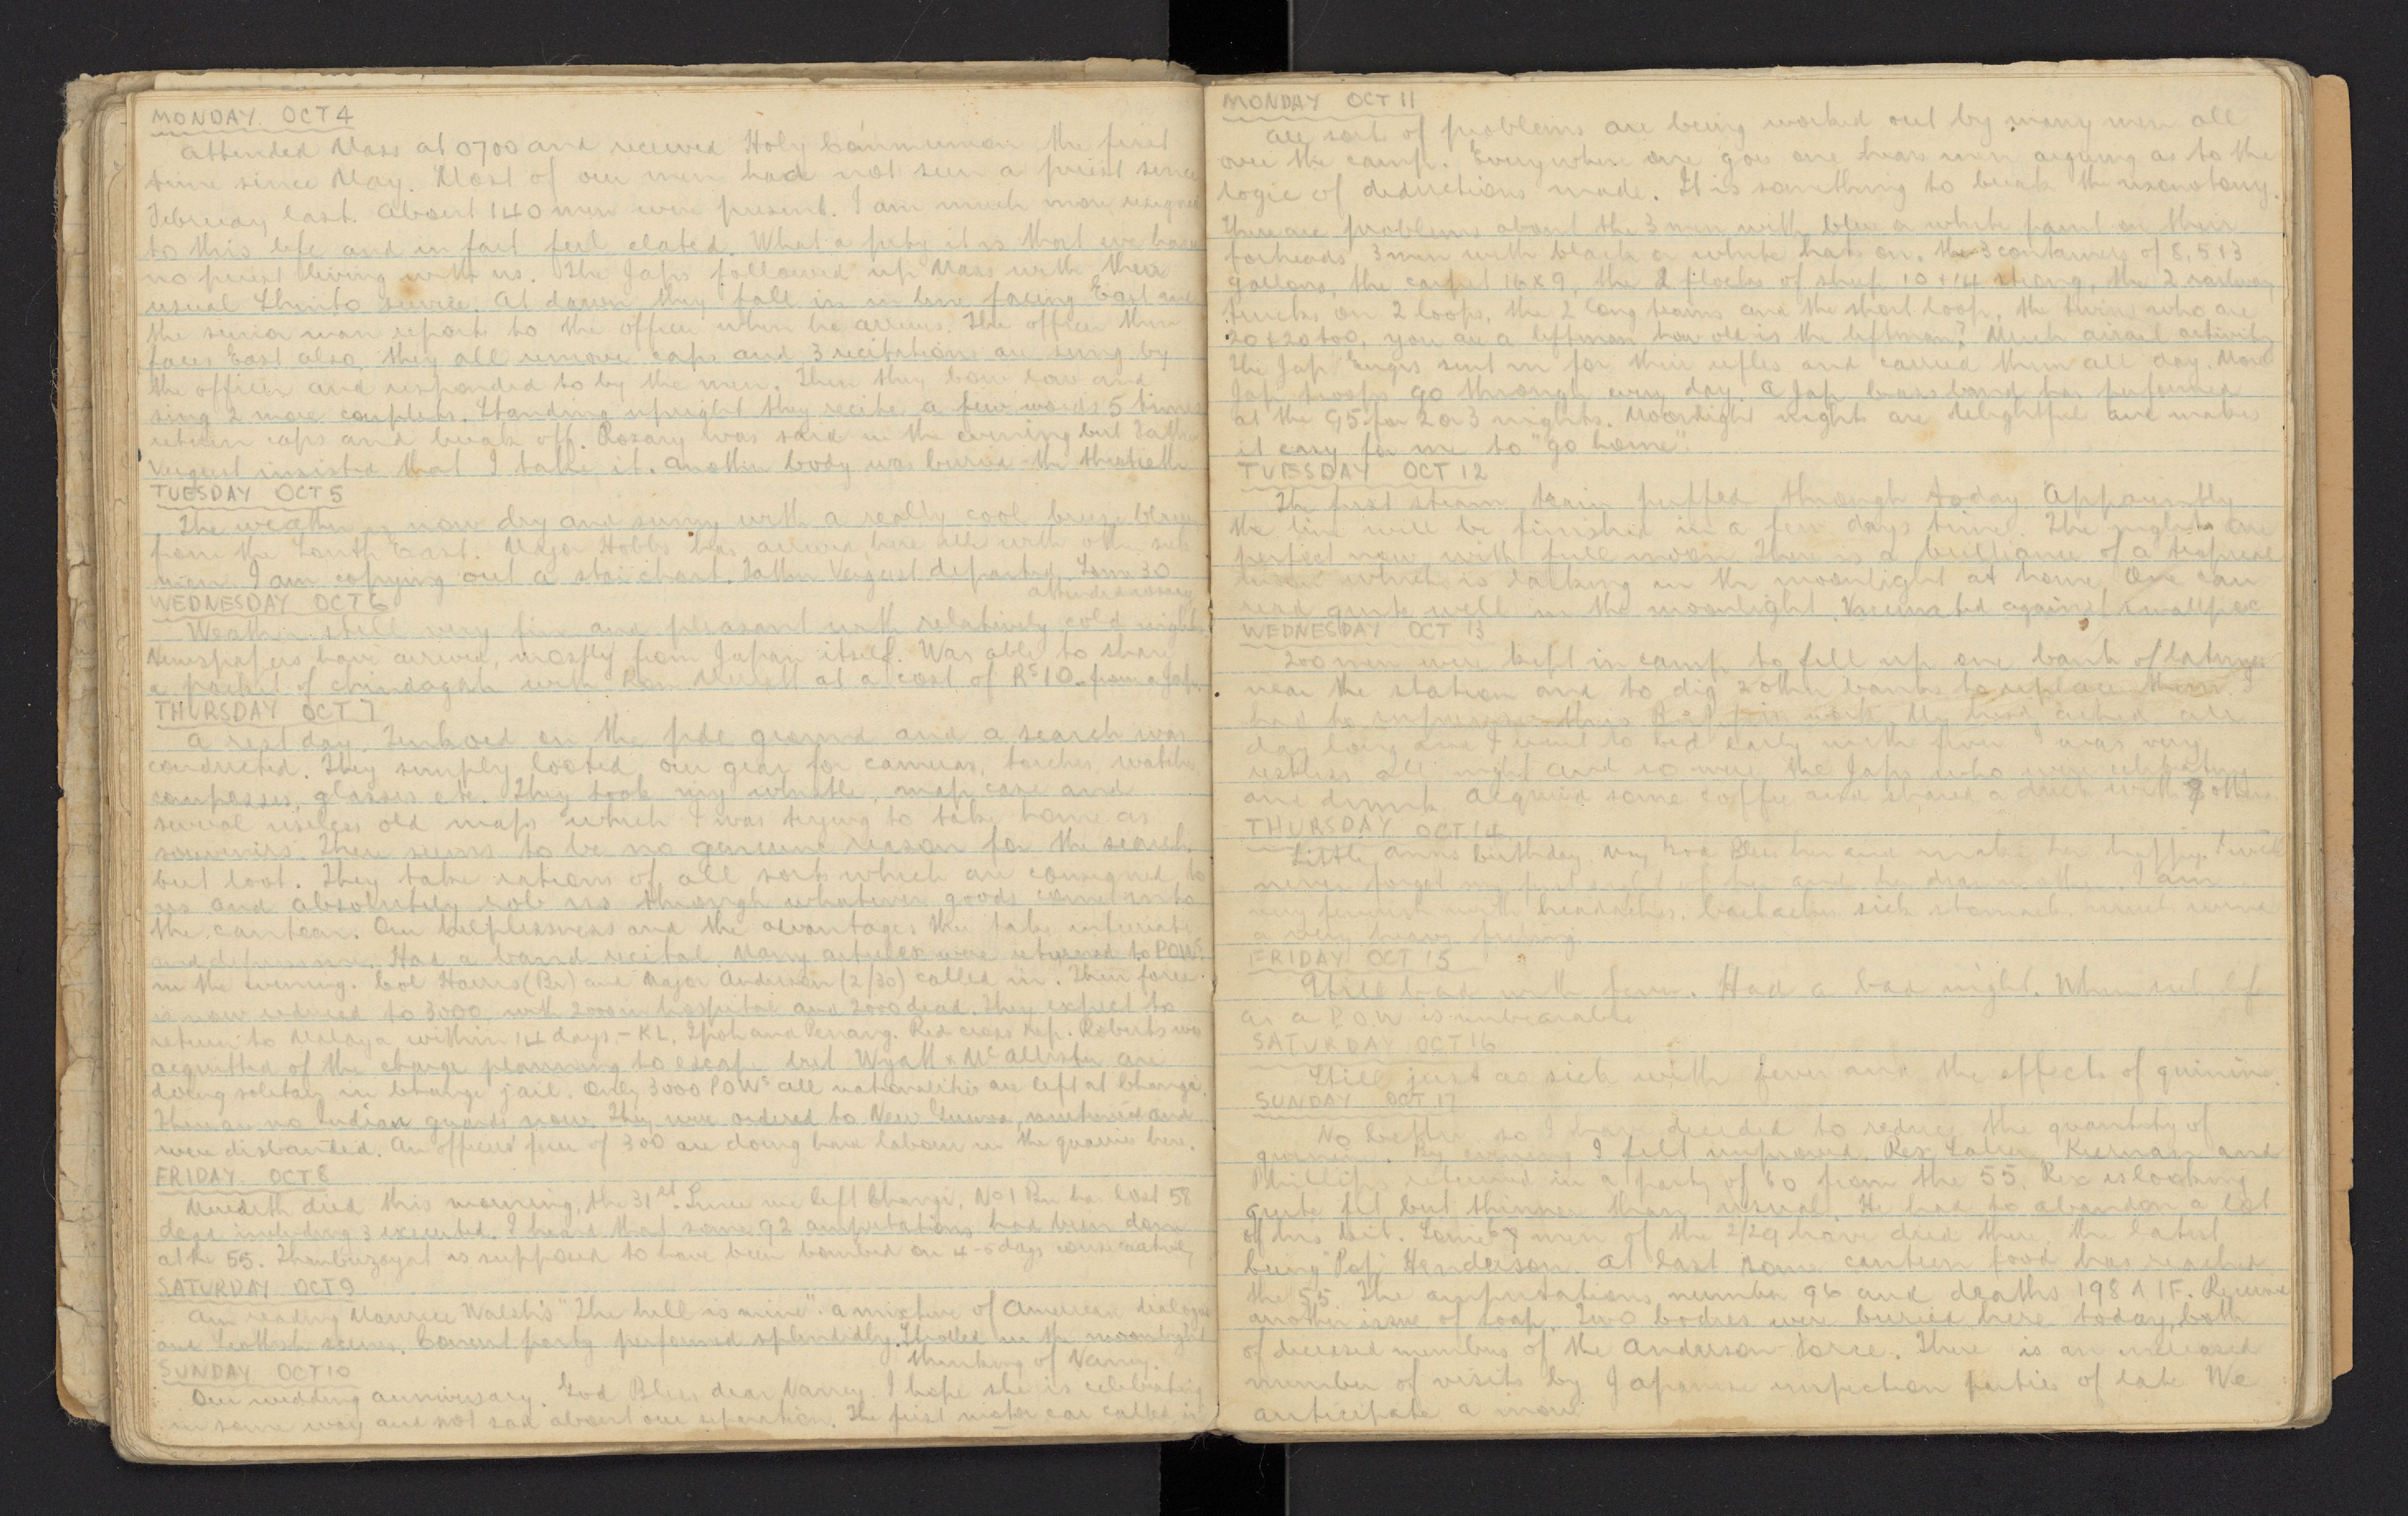 MONDAY. OCT 4
Attended Mass at 0700 and received Holy Communion, the first
time since May. Most of our men had not seen a priest since
February last. About 140 men were present. I am much more resigned
to this life and in fact feel elated. What a pity it is that we have
no priest living with us. The Japs followed up Mass with their
usual Shinto service. At dawn they fall in in line facing East and
the senior man reports to the officer when he arrives. The officer then
faces East also, they all remove caps and 3 recitations are sung by
the officer and responded to by the men. Then they bow low and
sing 2 more couplets. Standing upright they recite a few words 5 times
return caps and break off. Rosary was said in the evening but Father
Vergest insisted that I take it. Another body was buried - the thirtieth
TUESDAY OCT 5
The weather is now dry and sunny with a really cool breeze blowing
from the South East. Major Hobbs has arrived here with other sick
men. I am copying out a star chart. Father Vergest departed. Some 30
attended rosary
WEDNESDAY OCT 6
Weather still very fine and pleasant with relatively cold nights
Newspapers have arrived, mostly from Japan itself. Was able to share
a packet of chindagah with Ron Merrett at a cost of Rs 10 from a Jap.
THURSDAY OCT 7
A rest day. Tenkoed on the pde ground and a search was
conducted. They simply looted our gear for cameras, torches, watches
compasses, glasses etc. They took my whistle, map case and
several useless old maps which I was trying to take home as
souvenirs. There seems to be no genuine reason for the search
but loot. They take rations of all sorts which are consigned to
us and absolutely rob us through whatever goods come into
the canteen. Our helplessness and the advantages they take infuriate
and depress me. Had a band recital. Many articles were returned to POWs
in the evening. Col Harris (Br) and Major Anderson (2/30) called in. Their force
is now reduced to 3000, with 2000 in hospital and 2000 dead. They expect to
return to Malaya within 14 days - KL, Ipoh and Penang. Red Cross Rep. Roberts was
acquitted of the charge planning to escape but Wyatt & McAllister are
doing solitary in Changi jail. Only 3000 POWs all nationalities are left at Changi.
There are no Indian guards now. They were ordered to New Guinea, mutinied and
were disbanded. An officers' force of 300 are doing hard labour in the quarries here.
FRIDAY OCT 8
Meredith died this morning, the 31st. Since we left Changi, No 1 Bn has lost 58
dead including 3 executed. I heard that some 92 amputations had been done
at the 55. Thanbuzayat is supposed to have been bombed on 4-5 days consecutively
SATURDAY OCT 9
Am reading Maurice Walsh's "The hill is mine". A mixture of American dialogue
and Scottish scenes. Concert party performed splendidly. Strolled in the moonlight
thinking of Nancy.
SUNDAY OCT 10
Our wedding anniversary. God Bless dear Nancy. I hope she is celebrating
in some way and not sad about our separation. The first motor car called in
MONDAY OCT 11
All sorts of problems are being worked out by many men all
over the camp. Everywhere one goes one hears men arguing as to the
logic of deductions made. It is something to break the monotony.
There are problems about the 3 men with blue or white paint on their
forheads, 3 men with black or white hats on, the 3 containers of 8, 5 & 3
gallons, the carpet 16 x 9, the 2 flocks of sheep 10 & 14 strong, the 2 railway
trucks on 2 loops, the 2 long trains and the short loop, the twins who are
20 & 20 too, you are a liftman how old is the liftman? Much aircraft activity
The Jap Engrs sent in for their rifles and carried them all day. More
Jap troops go through every day. A Jap brass band has performed
at the 95 for 2 or 3 nights. Moonlight nights are delightful and makes
it easy for me to "go home".
TUESDAY OCT 12
The first steam train puffed through today. Apparently
the line will be finished in a few days time. The nights are
perfect now with full moon. There is a brilliance of a tropical
moon which is lacking in the moonlight at home. One can
read quite well in the moonlight. Vaccinated against smallpox
WEDNESDAY OCT 13
200 men were kept in camp to fill up one bank of latrines
near the station and to dig 2 other banks to replace them. I
had to supervise this work. My body ached all
day long and I went to bed early with fever. I was very
restless all night and so were the Japs who were celebrating
and drunk. Acquired some coffee and shared a drink with others
THURSDAY OCT 14
Little Anns birthday. May God Bless her and make her happy. I will
never forget my first sight of her and her dear mother. I am
very feverish with headaches, backaches, sick stomach, much wind
a very heavy feeling
FRIDAY OCT 15
Still bad with fever. Had a bad night. When sick, life
as a P.O.W is unbearable
SATURDAY OCT 16
Still just as sick with fever and the effects of quinine.
SUNDAY OCT 17
No better so I have decided to reduce the quantity of
quinine. By evening I felt improved. Rex Kiernan and
Phillips returned in a party of 60 from the 55. Rex is looking
quite fit but thinner than usual. He had to abandon a lot
of his kit. Some men of the 2/29 have died there, the latest
being "Pop" Henderson. At last some canteen food has reached
the 55. The amputations number 96 and deaths 198 AIF. Received
another issue of soap. Two bodies were buried here today, both
of deceased members of the Anderson Force. There is an increased
number of visits by Japanese inspection parties of late. We
anticipate a move